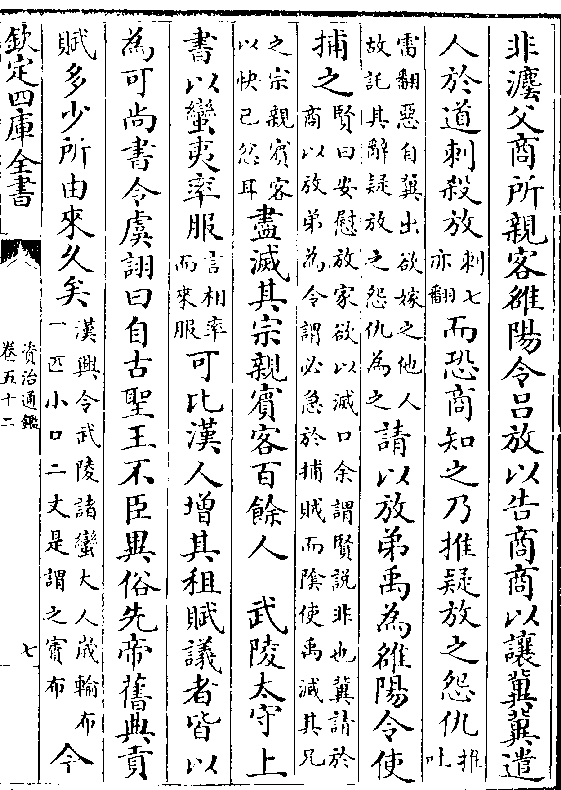 非瀍父商所親客雒陽令吕放以告商商以讓冀冀遣
人於道刺殺放刺七亦翻而恐商知之乃推疑放之怨仇推吐
雷翻惡自冀出欲嫁之他人故託其辭疑放之怨仇為之請以放弟禹為雒陽令使
捕之賢曰安慰放家欲以滅口余謂賢説非也冀請於商以放弟為令謂必急於捕賊而隂使禹滅其兄
之宗親賓客以快已忿耳盡滅其宗親賓客百餘人　武陵太守上
書以蠻夷率服言相率而來服可比漢人增其租賦議者皆以
為可尚書令虞詡曰自古聖王不臣異俗先帝舊典貢
賦多少所由來久矣漢興令武陵諸蠻大人嵗輸布一匹小口二丈是謂之賨布今
欽定四庫全書
資治通鑑
卷五十二
七